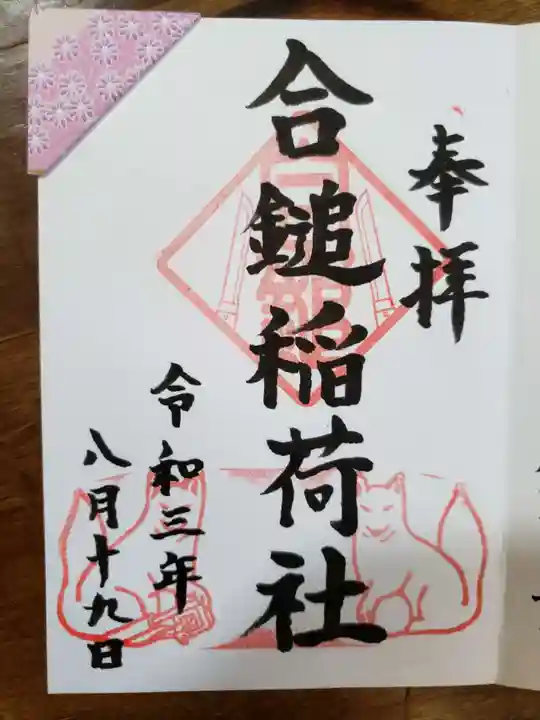 奉拝
合鎚稲荷社
令和三年
八月十九日